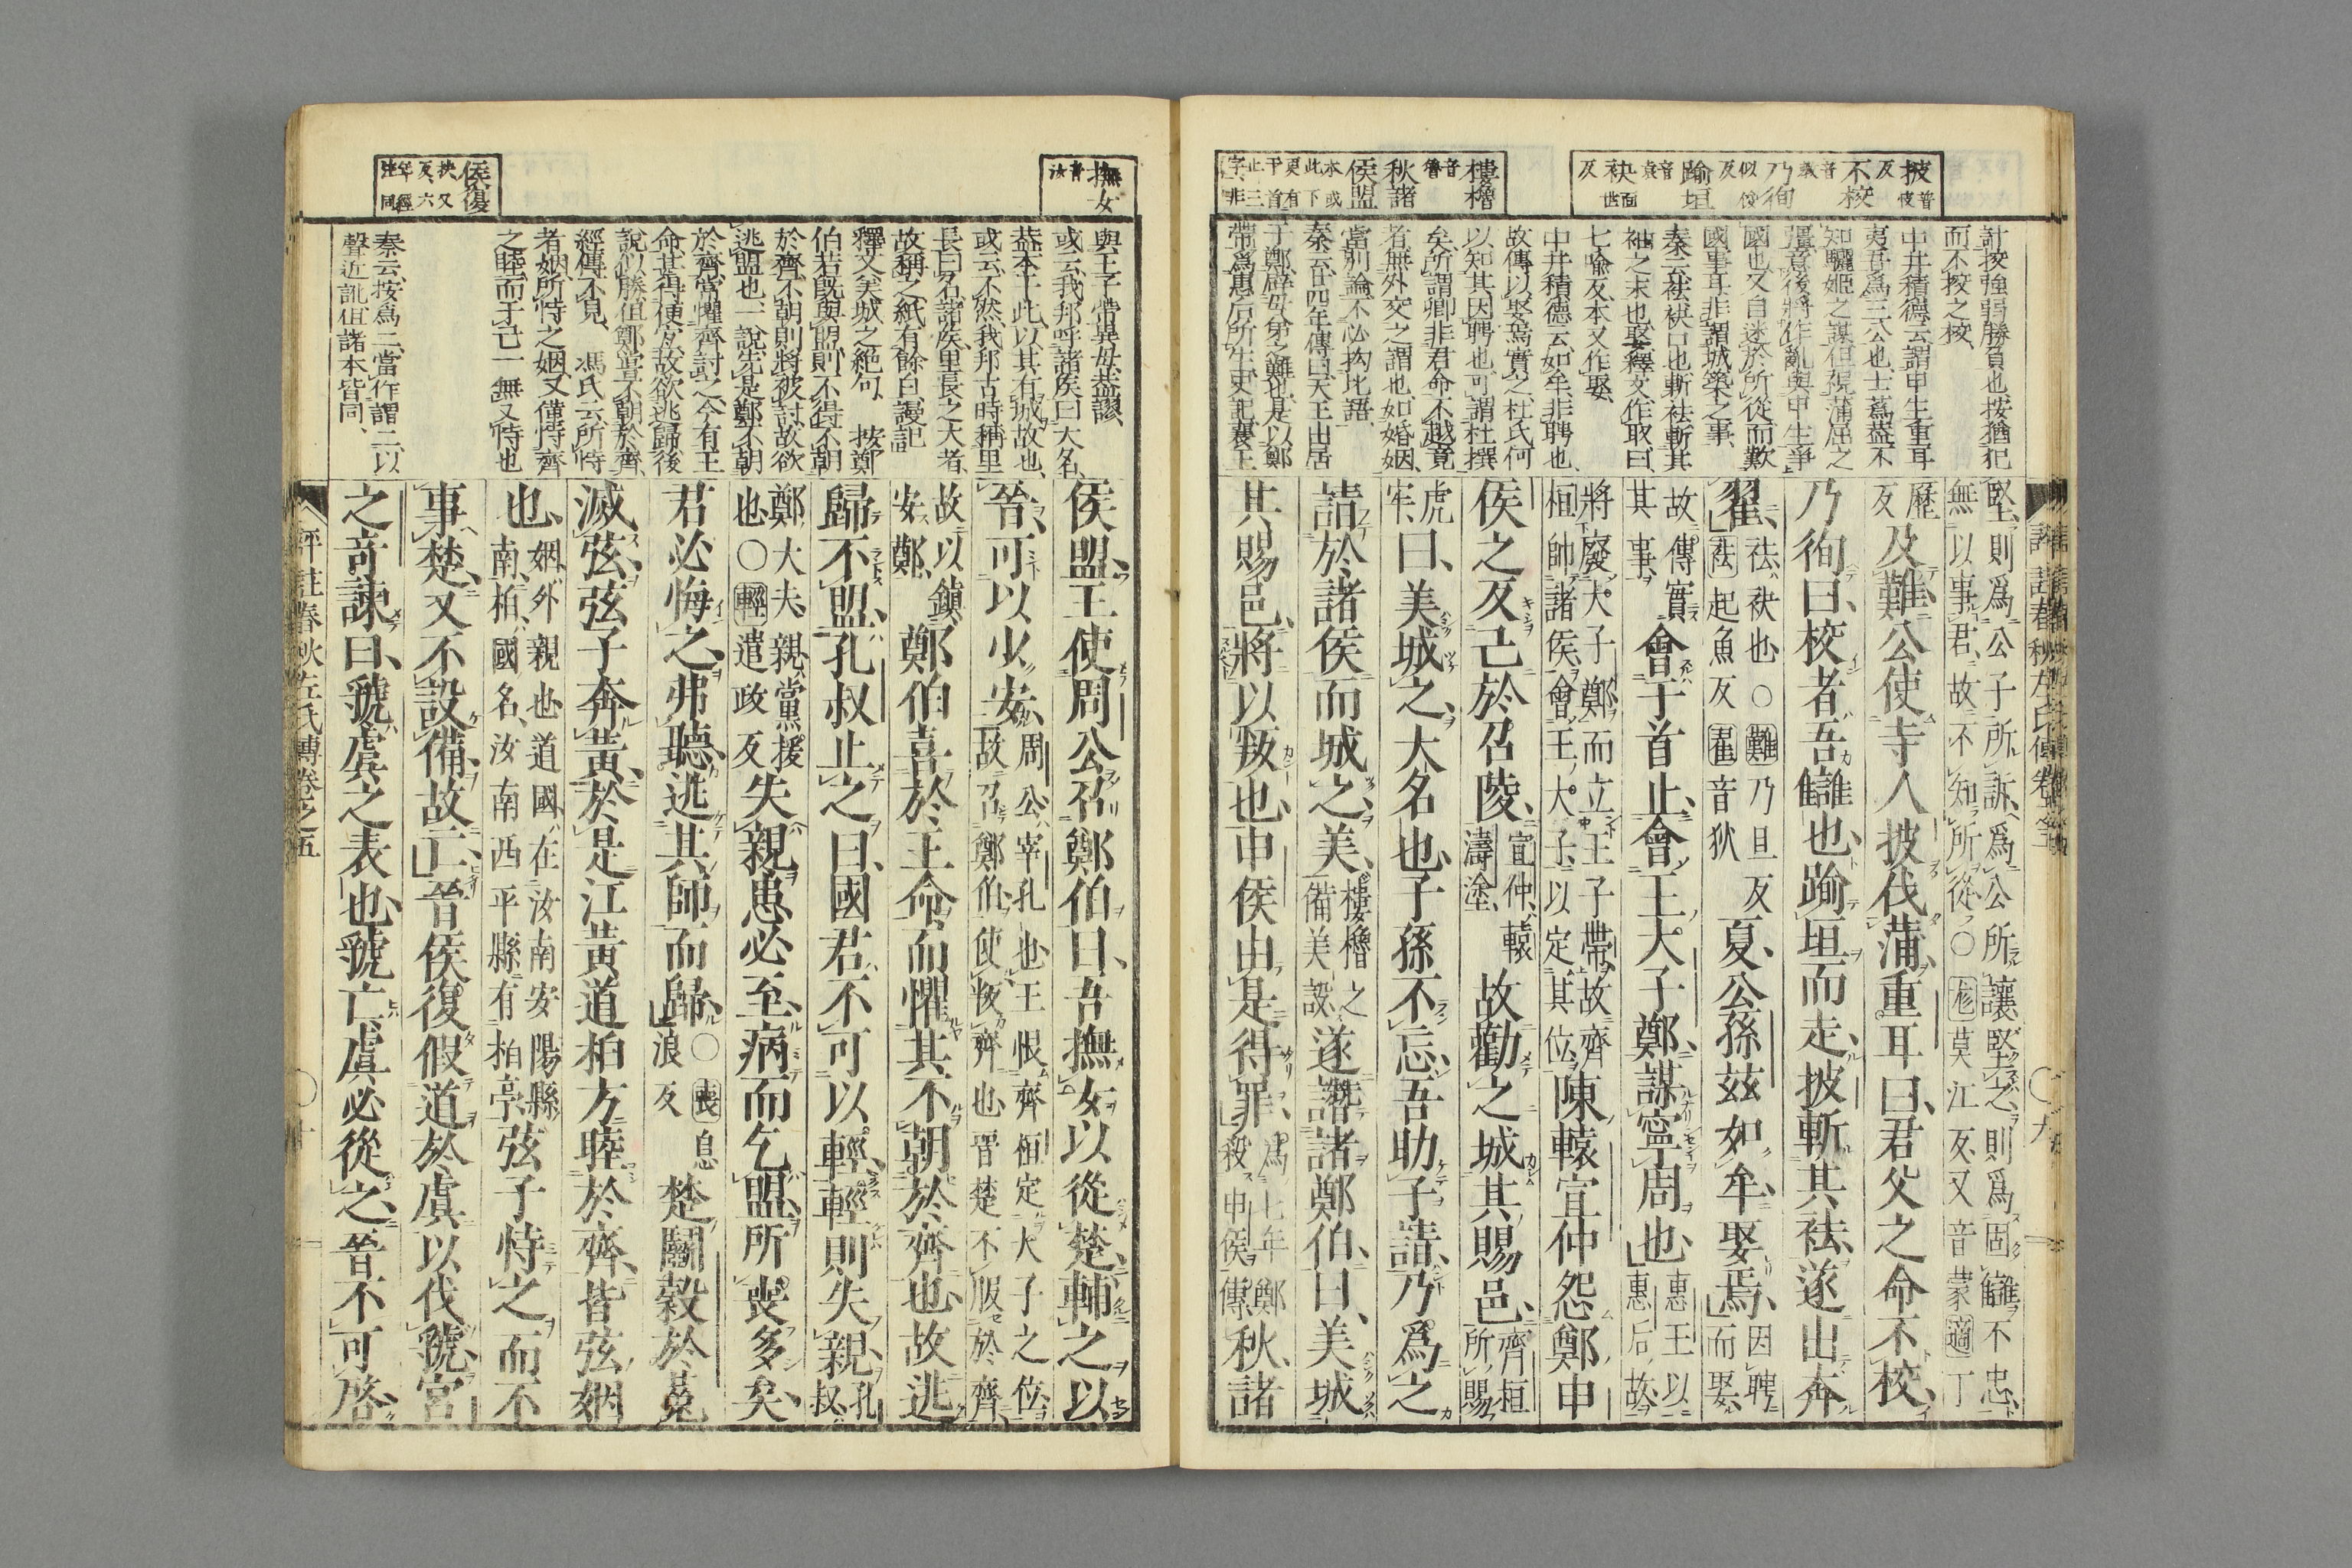 披普皮反
不校音教
乃徇似俊反
踰垣音袁
袂面世反
樓櫓音魯
秋諸侯盟
本或此下更有于首止三字非
計挍強弱勝負也按猶犯
而不挍之挍
中井積德云謂申生重耳
夷吾爲三公也士蔿蓋不
知驪姬之謀但視蒲屈之
彊意後將作亂與申生爭
國也又自迷於所從而歎
國事耳非謂城築之事
秦云袪袂口也斬袪斬其
袖之末也娶釋文作取曰
七喻反本又作娶
中井積德云如牟非聘也
故傳以娶焉實之杜氏何
以知其因聘也可謂杜撰
矣所謂卿非君命不越竟
者無外交之謂也如婚姻
當別論不必拘此語
秦云廿四年傳曰天王出居
于鄭辟母弟之難也是以鄭
帶爲惠后所生史記襄王
堅則爲公子所訴爲公所讓堅之則爲固讎不忠
無以事君故不知所從〇尨莫江反又音蒙適丁
歷反
及難公使寺人披伐蒲重耳曰君父之命不校
乃徇曰校者吾讎也踰垣而走披斬其袪遂出奔
翟
袪袂也〇難乃旦反
袪起魚反翟音狄
夏公孫茲如牟娶焉
因聘而娶
故傳實其事
會于首止會王大子鄭謀寧周也
惠王以惠后故
將廢大子鄭而立王子帶故齊
桓帥諸侯會王大子以定其位
陳轅宣仲怨鄭申
侯之反己於召陵
宣仲轅濤塗
故勸之城其賜邑
齊桓所賜
虎牢
曰美城之大名也子孫不忘吾助子請乃爲之
請於諸侯而城之美
樓櫓之備美設
遂譖諸鄭伯曰美城
其賜邑將以叛也申侯由是得罪
爲七年鄭殺申侯傳
秋諸
撫女音汝
侯復扶又反六年經注同
與王子帶異母蓋謬
或云我邦呼諸侯曰大名
蓋本于此以其有城故也
或云不然我邦古時稱里
長曰名諸侯里長之大者
故稱之紙有餘曰謾記
釋文美城之絶句　按鄭
伯若旣與盟則不得不朝
於齊不朝則將被討故欲
逃盟也一說先是鄭不朝
於齊常懼齊討之今有王
命甚得便宜故欲逃歸後
說似勝但鄭嘗不朝於齊
經傳不見　馮氏云所恃
者姻所恃之姻又僅恃齊
之睦而于己一無又恃也
秦云按爲二當作謂二以
聲近訛但諸本皆同
侯盟王使周公召鄭伯曰吾撫女以從楚輔之以
晉可以少安
周公宰孔也王恨齊桓定大子之位
故召鄭伯使叛齊也晉楚不服於齊
故以鎮安鄭
鄭伯喜於王命而懼其不朝於齊也故逃
歸不盟孔叔止之曰國君不可以輕輕則失親
孔叔
鄭大夫親黨援也〇輕遣政反
失親患必至病而乞盟所喪多矣
君必悔之弗聽逃其師而歸
〇喪息浪反
楚鬭穀於菟
滅弦弦子奔黃於是江黃道柏方睦於齊皆弦姻
也
姻外親也道國在汝南安陽縣
南柏國名汝南西平縣有柏亭
弦子恃之而不
事楚又不設備故亡晉侯復假道於虞以伐虢宮
之奇諫曰虢虞之表也虢亡虞必從之晉不可啓
評註春秋左氏傳卷之五